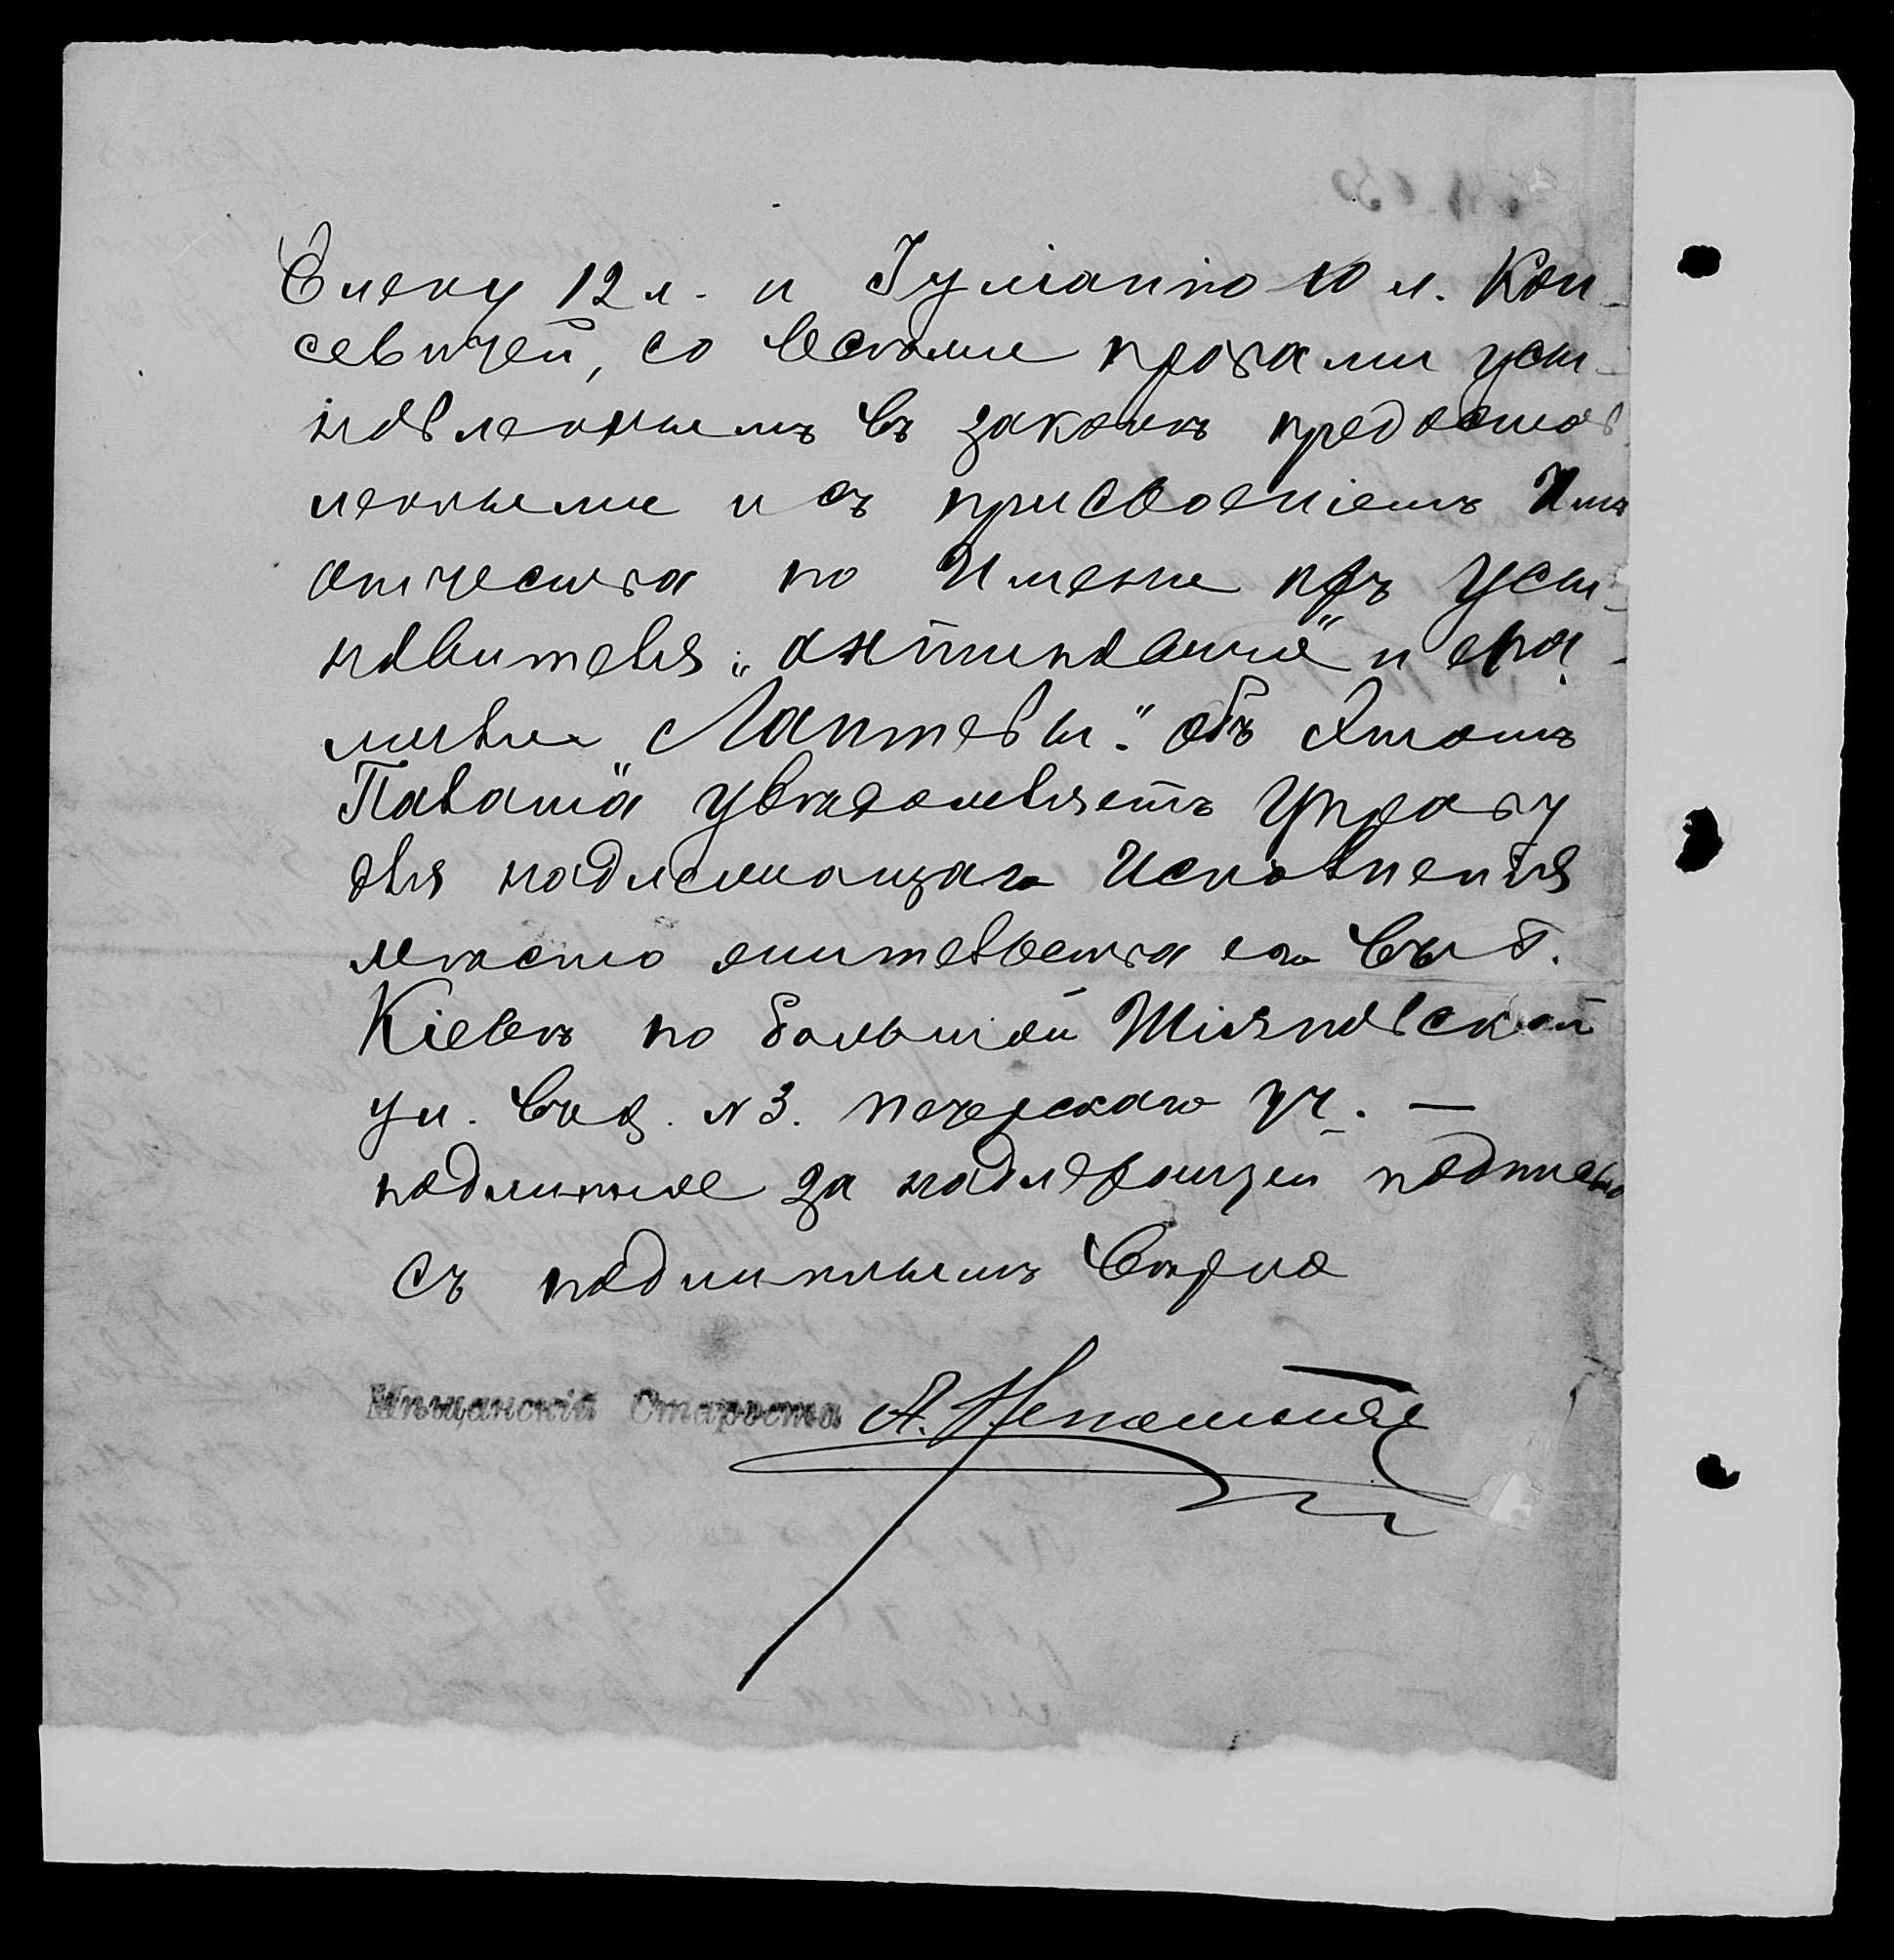 Елену 12 л. и Іуліанію 10 л. Кон-
севичей, со всеми правами усы-
новленнымъ въ законѣ предостав
ленными и съ присвоеніемъ Имъ
отчества по Имени пр. усы-
новителя „антиповичи" и фа-
миліи „Лаптевы". объ Этомъ
Палата увѣдомляетъ Управу
для надлежащаго Исполненія
мѣсто жительства его въ г.
Кіевѣ по большой Шіяновской
ул. въ д. №3. печерскаго уч. —
подлинное за надлежащей подписью
съ подлиннымъ вѣрно
Мѣщанскій Староста А.